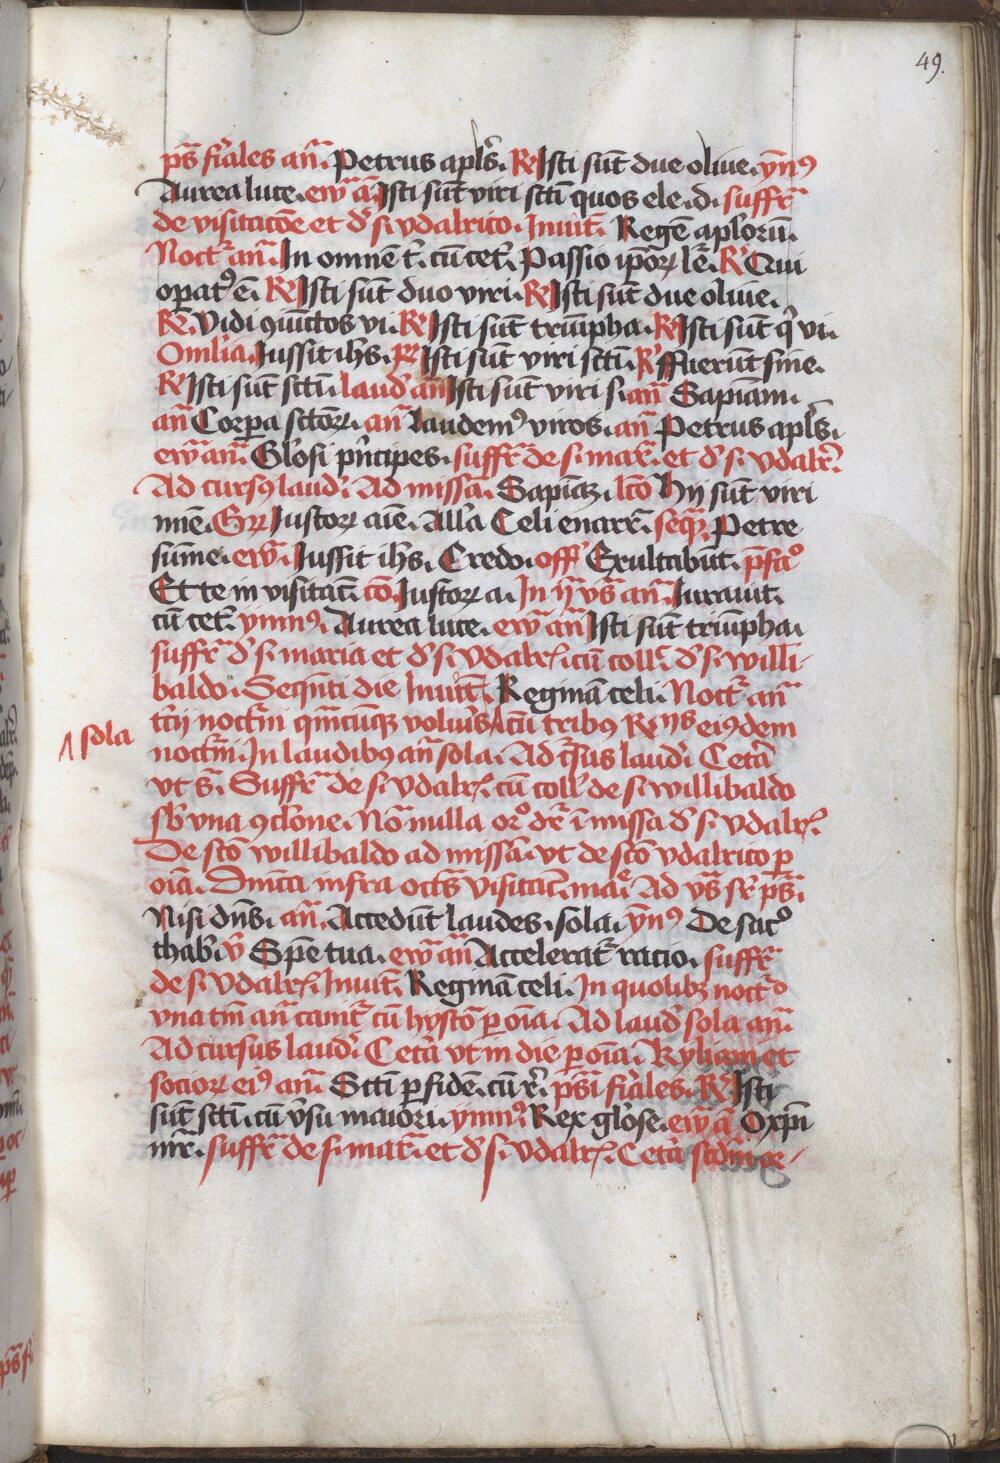 49.
ps̄ fīales an̄. Petrus apl̄s. R Isti sūt due oliue. ȳn9
Aurea luce. ew̄ ā Isti sūt viri sc̄ti quos ele. d. suffr̄
de visitacōe et d̓ s. vdalrico. Inuit̄. Regē aplorū.
Noct̄ an̄. In omnē t̄. cū cet̄. Passio ip̄oꝝ le͞c. R Qui
opat9 ē. R Isti sūt duo viri. R Isti sūt due oliue.
R. Vidi 9iūctos vi. R Isti sūt triūpha. R Isti sūt q̄ vi.
Omīlia. Iussit ih̄s. R Isti sūt viri sc̄ti. R Fuerūt sine.
R Isti sūt sc̄ti. laud̓ an̄ Isti sūt viri s. an̄ Sapiām.
an̄ Corꝑa sc̄toꝝ. an̄ laudem9 viros. an̄ Petrus apl̄s.
ew̄ an̄. Glōsi p̄ncipes. suffr̄ de s. mar̄. et d̓ s. vdalr̄.
Ad curs9 laud̓. Ad missā. Sapiāꝫ. lc̄o Hij sūt viri
mīe. Gꝝ Iustoꝝ aīe. All̓a Celi enarr̄. seq̄. Petre
sūme. ew̄. Iussit ih̄s. Credo. off̓ Exultabūt. p̄fac̄o
Et te in visitat̄. cō. Iustoꝝ a. In ij v̄s an̄. Iurauit.
cū cet̄. ymn9. Aurea luce. ew̄ an̄ Isti sūt triūpha.
suffr̄ d̓ s. maria et d̓ s. vdalr̄. cū coll̓. d̓ s. willi-
baldo. Seq̄nti die Inuit̄. Reginā celi. Noct̄ an̄
t̄cij noct̄ni qm̄cūqꝫ voluūs /\ cū tribus R ijs ei9dem
/\ sola
noct̄ni. In laudibus an̄ sola. Ad c̄sus laud̓. Cetā
vt s̄. Suffr̄ de s. vdalr̄. cū coll̓ de s. willibaldo
sb̓ vna 9cl̄one. Nō nulla or̄o dr̄ ī missa d̓ s. vdalr̄.
De sc̄o willibaldo ad missā. vt de sc̄o vdalrico ꝑ
oīa. Dn̄ica infra octās visitac̄. mar̄. Ad v̄s sr̄ ps̄.
Nisi dn̄s. an̄. Accedūt laudes. sola. ȳn9 De sac̄o
thab̓. v̄ Spē tua. ew̄ an̄ Accelerat̄ racio. suffr̄
de s. vdalr̄. Inuit̄. Reginā celi. In quolibꝫ noct̄o
vna tm̄ an̄ canit̄ cū hystō ꝑ oīa. Ad laud̓ sola an̄.
Ad cursus laud̓. Cetā vt in die ꝑ oīa. Kyliani et
socioꝝ ei9 an̄. Sc̄ti ꝑ fidē. cū r̄. ps̄i fīales. R Isti
sūt sc̄ti. cū v̄su maiori. ymn9. Rex glōse. ew̄ ā O xp̄i
mr̄. suffr̄ de s. mar̄. et d̓ s. vdalr̄. Cetā scd̄m or-